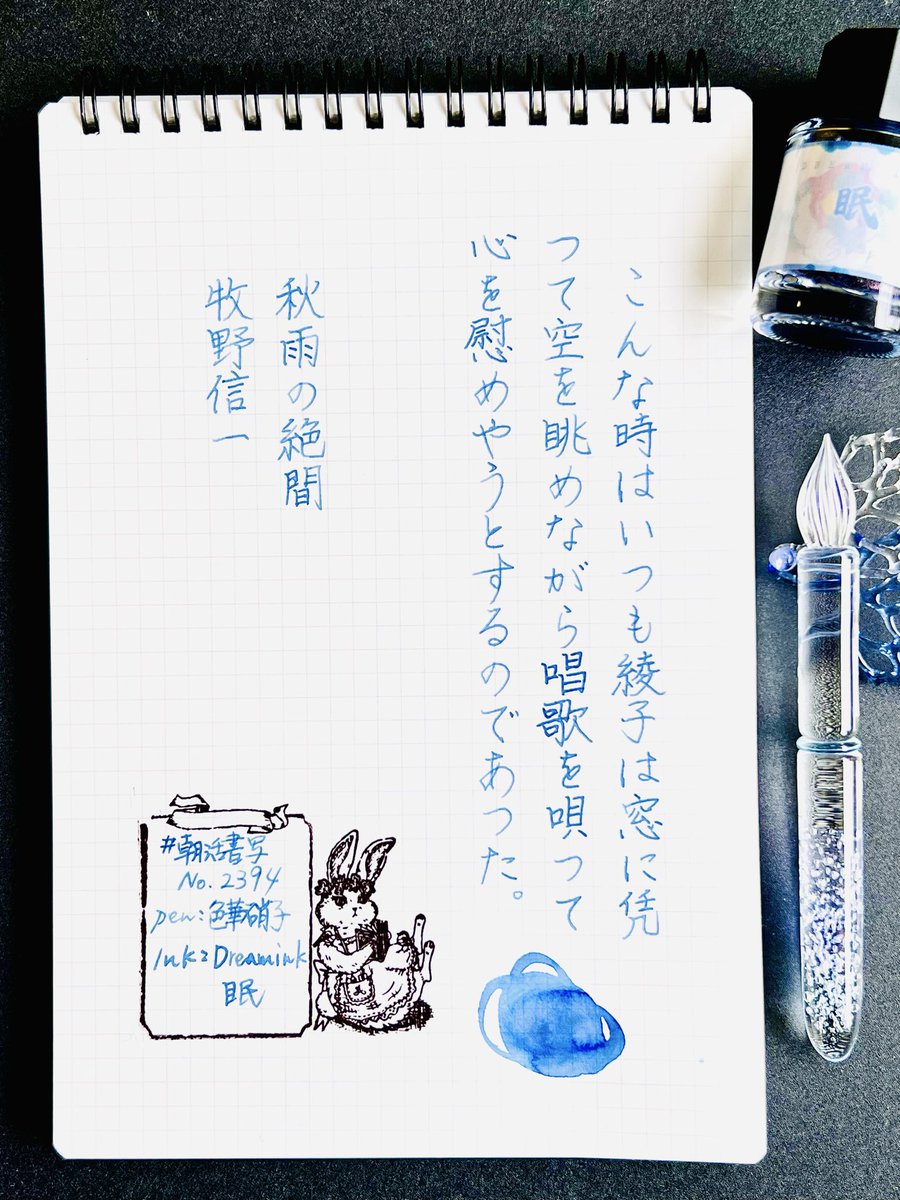 こんな時はいつも綾子は窓に凭
つて空を眺めながら唱歌を唄つて
心を慰めやうとするのであつた。
秋雨の絶間
牧野信一
#朝活書写
No. 2394
pen:色華硝子
Ink:Dreamink
眠
眠